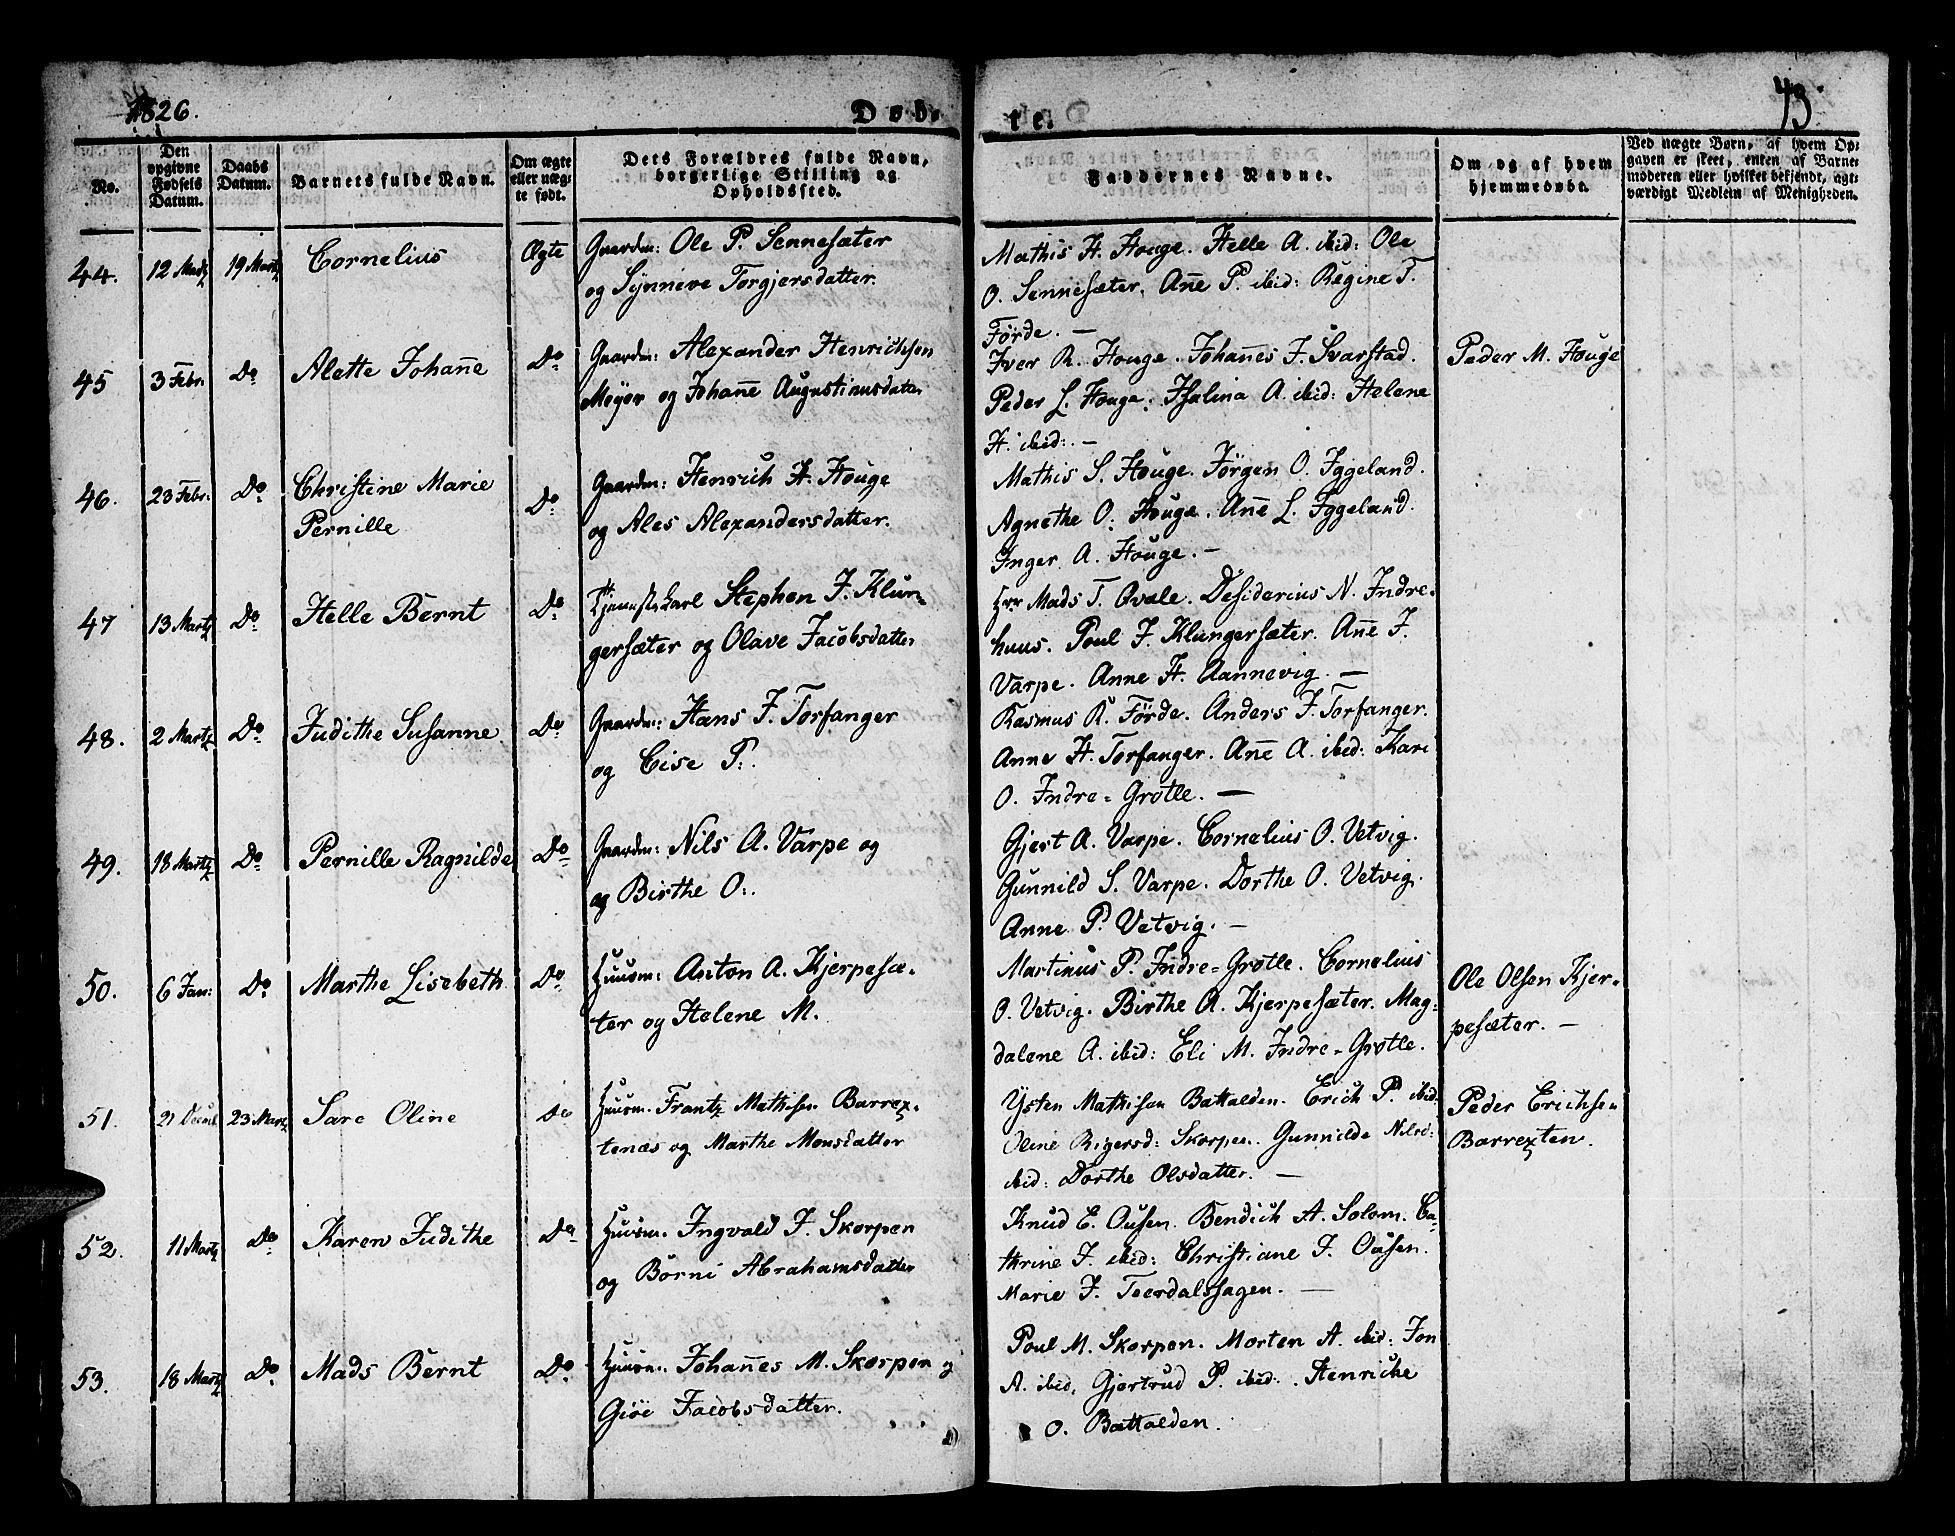 1826.
Døbte.
43.
No.
Den opgivne Fødsels Datum.
Daabs Datum.
Barnets fulde Navn.
Om ægte eller nægte født.
Dets Forældres fulde Navn, borgerlige Stilling og Opholdssted.
Faddernes Navne.
Om og af hvem hjemmedøbt.
Ved nægte Børn, af hvem Op-
gaven er skeet, enten af Barne-
moderen eller hvilket bekjendt, agt-
værdigt Medlem af Menigheden.
44. 12 Martz 19 Martz Cornelius Ægte Gaardm: Ole P. Sennesæter
og Synneve Torgjersdatter.
Mathis H. Houge. Helle A. ibid: Ole
O. Sennesæter. Añe P. ibid: Regine T.
Förde. —
45 3 Febr. Do Alette Johañe Do Gaardm: Alexander Henrichsen
Meyer og Johañe Augustinusdatter
Iver R. Houge. Johañes J. Svarstad.
Peder L. Houge. Isalina A. ibid: Helene
H. ibid:. —
Peder M. Houge
46. 23 Febr: Do Christine Marie
Pernille
Do. Gaardm: Henrich H. Houge
og Ales Alexandersdatter.
Mathis S. Houge. Jörgen O. Iggeland.
Agnethe O. Houge. Añe L. Iggeland.
Inger A. Houge. —
47 13 Martz Do. Helle Bernt Do Tjenestekarl Stephen J. Klun-
gersæter og Olave Jacobsdatter
Hrr Mads T. Qvale. Desiderius N. Indre-
huus. Poul J. Klungersæter. Añe J.
Varpe. Anne H. Aannevig. —
48. 2 Martz Do. Judithe Susanne Do Gaardm: Hans J. Torfanger
og Cise P:.
Rasmus R. Förde. Anders J. Torfanger.
Anne H. Torfanger. Añe A. ibid: Kari
O. Indre-Grotle. —
49. 18 Martz Do. Pernille Ragnilde Do Gaardm: Nils A. Varpe og
og Birthe O:.
Gjert A. Varpe. Cornelius O. Vetvig.
Gunnild S. Varpe. Dorthe O. Vetvig.
Anne P. Vetvig. —
50. 6 Jan: Do. Marthe Lisebeth Do Huusm: Anton A. Kjerpesæ-
ter og Helene M.
Martinus P. Indre-Grotle. Cornelius
O. Vetvig. Birthe A. Kjerpesæter. Mag-
dalene A. ibid: Eli M. Indre-Grotle.
Ole Olsen Kjer-
pesæter. —
51. 21 Decmb. 23 Martz Sare Oline Do Huusm. Frantz Mathisen Barrex-
tenæs og Marthe Monsdatter
Ysten Mathisen Battalden. Erich P. ibid:
Oline Rigersd: Skorpen. Gunnilde Nilsd:
ibid: Dorthe Olsdatter. —
Peder Erichsen
Barrexten.
52. 11 Martz Do Karen Judithe Do Huusm. Ingvald J. Skorpen
og Börni Abrahamsdatter
Knud E. Ousen. Bendich A. Solem. Ca-
thrine J. ibid: Christiane J. Ousen.
Marie J. Teerdalshagen. —
53. 18 Martz Do Mads Bernt Do. Huusm. Johañes M. Skorpen og
Giöe Jacobsdatter.
Poul M. Skorpen. Morten A. ibid: Jon
A. ibid, Gjertrud P. ibid: . Henriche
O. Battalden.